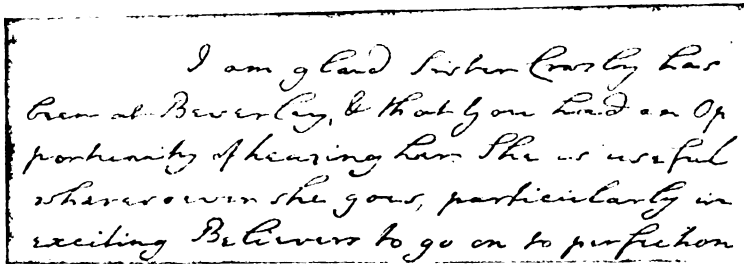 I am glad Sister Crosby has
been at Beverley, & that you had an Op
portunity of hearing her. She is useful
wheresoever she goes, particularly in
exciting Believers to go on to perfection